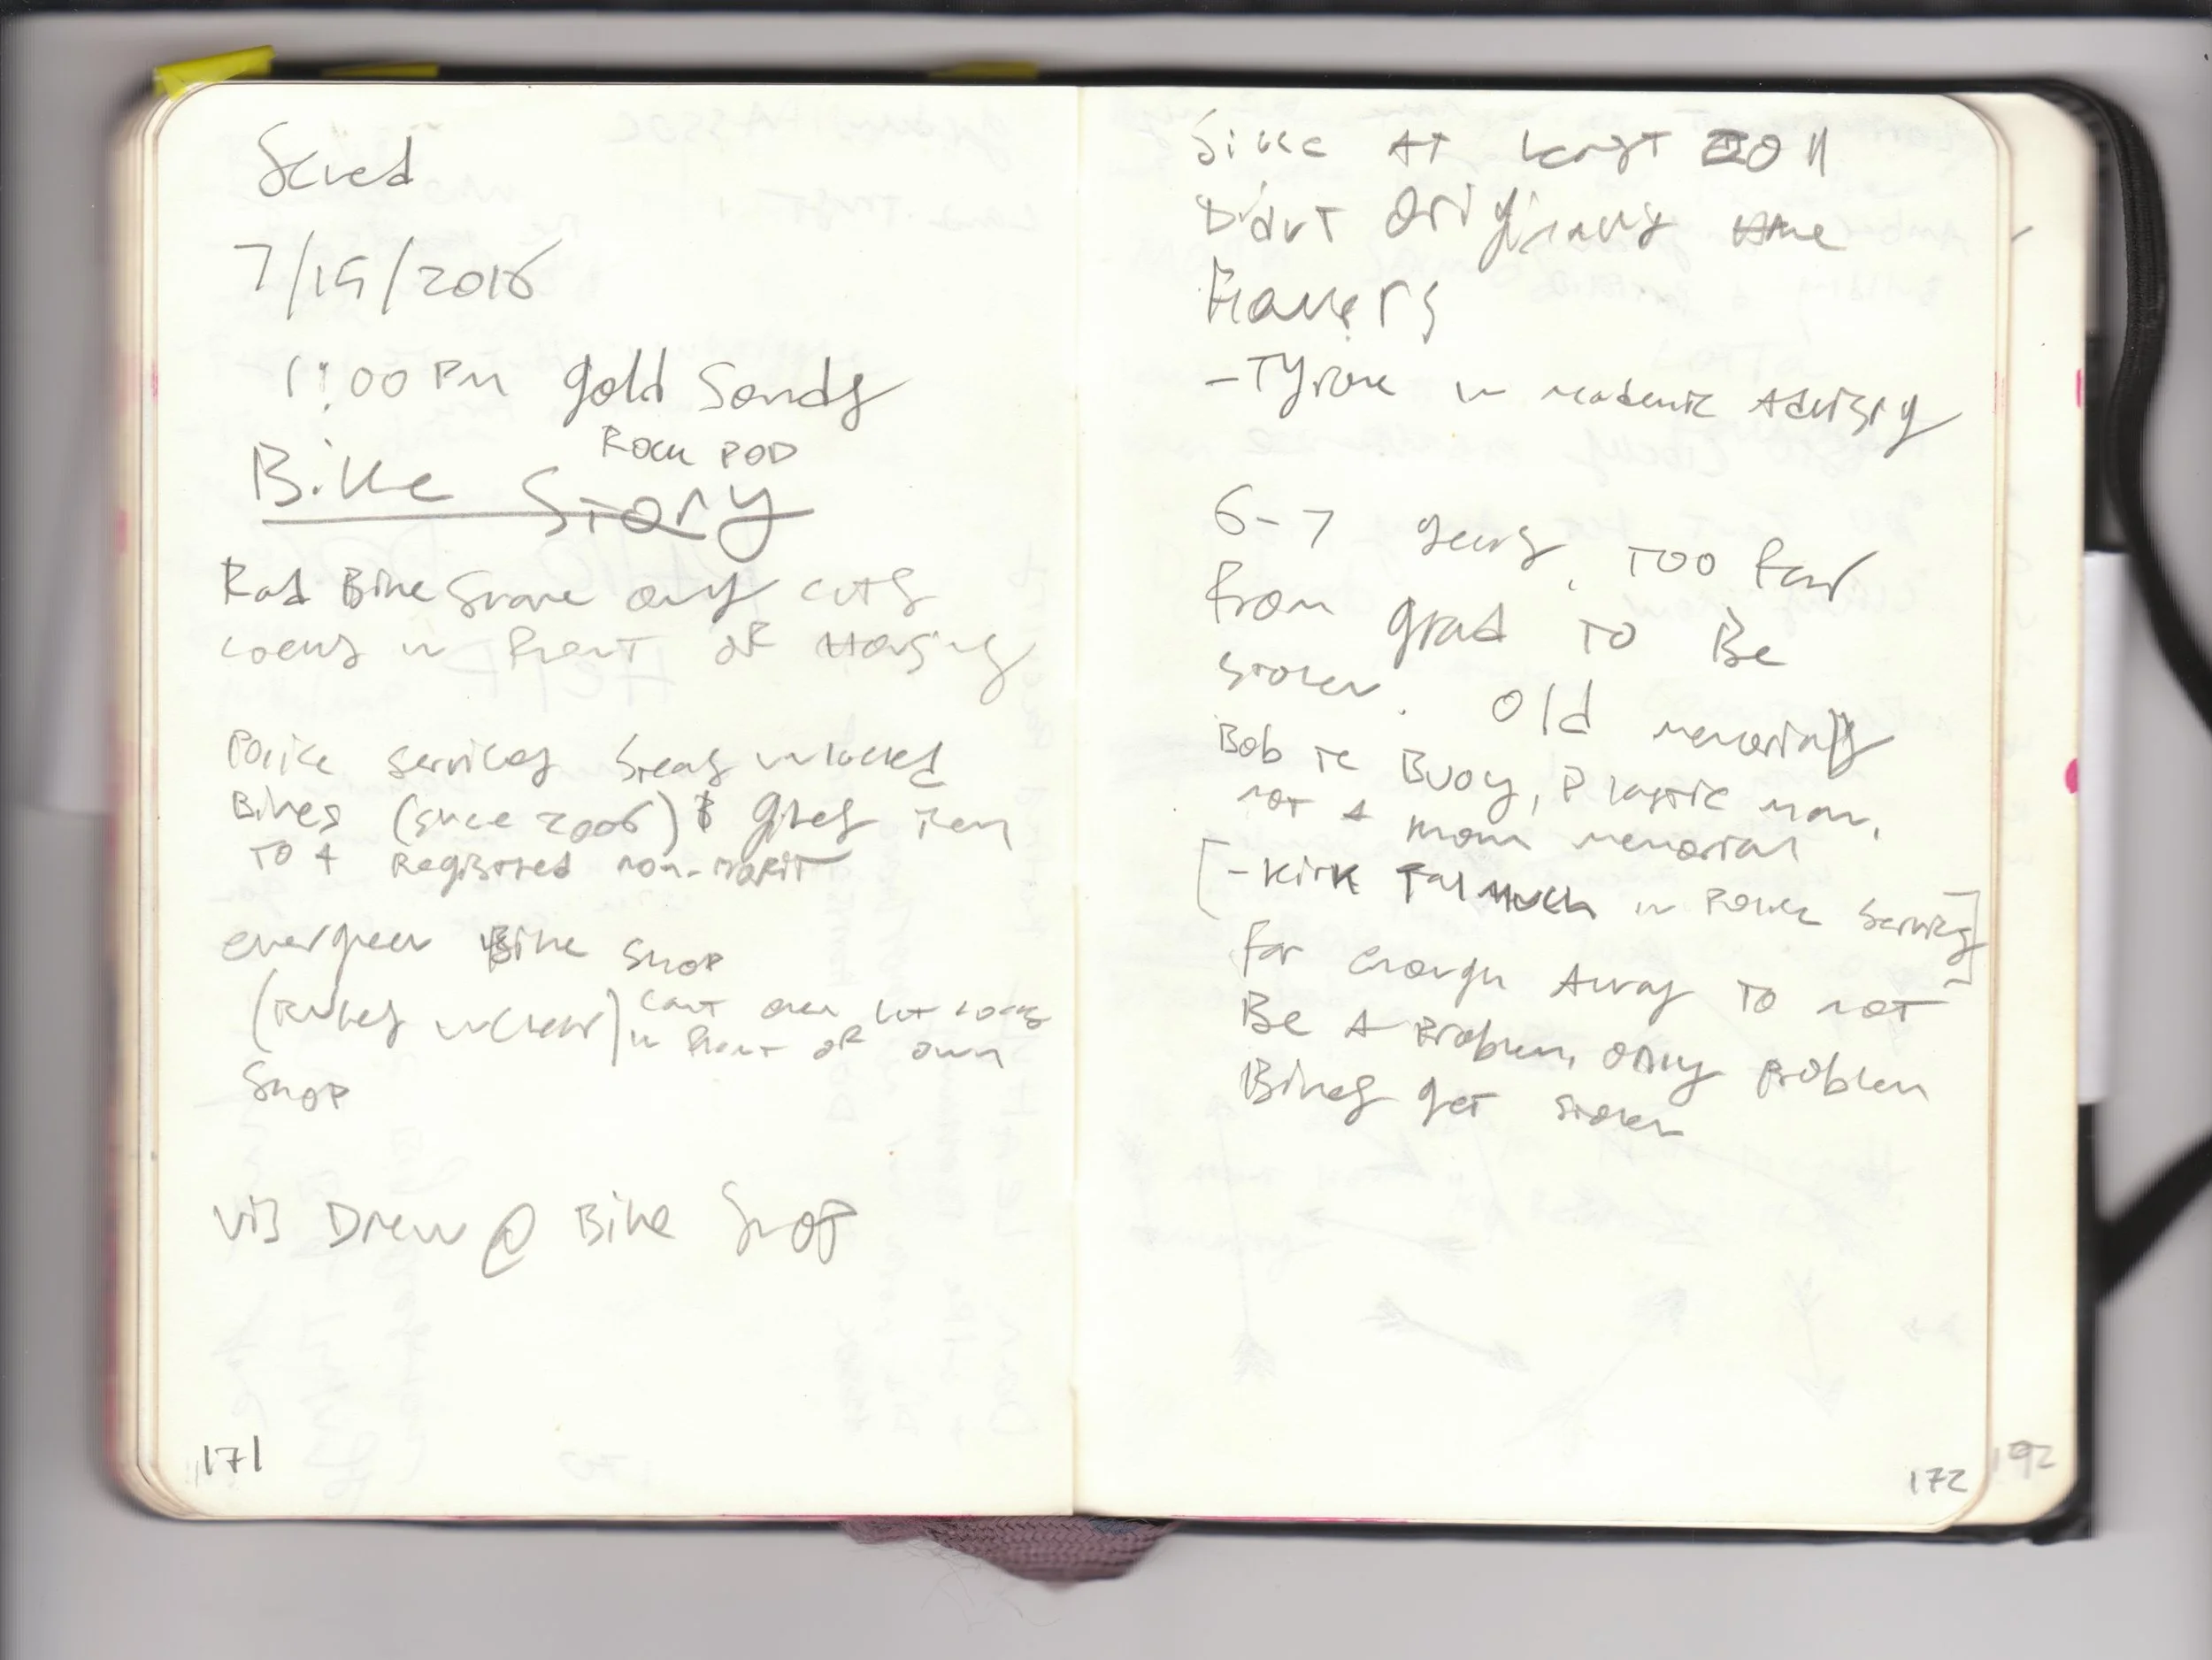 7/19/2016
11:00 PM gold Sands
Rock POD
Bike Story
Rad Bike Grave only cuts
Locks in front of Housing
Police services steals unlocked
Bikes (since 2006) & gives them
TO A Registered non-profit
evergreen Bike Shop
(Rules unclear) Cant even cut locks
in front of own
Shop
Drew @ Bike Shop
171
Since AT Least 2011
Didn't originally have
Flowers
- Tyrone in academic Advising
6-7 years, TOO far
from grad TO Be
stolen. Old memorials
Bob the Buoy, Plastic man,
not A mom memorial
[- Kirk in Police Services]
far enough Away TO not
Be A problem, only problem
Bikes get stolen
172
192